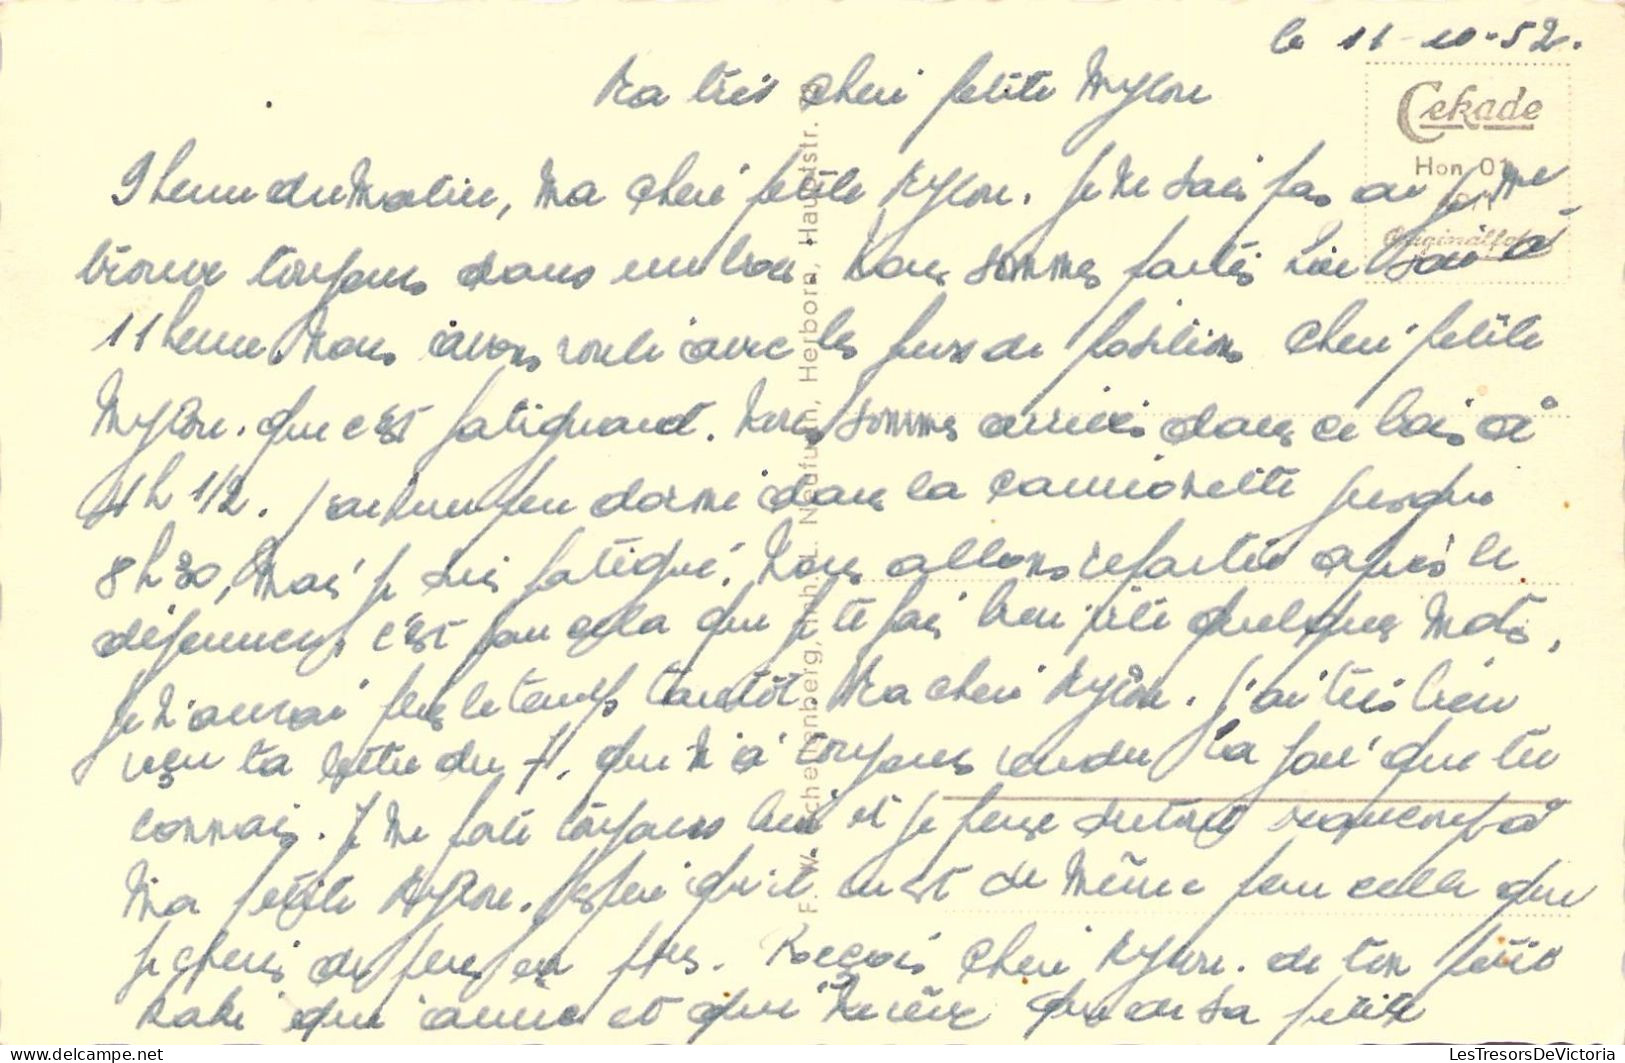 le 11-10-52.
Ma très cheri petite Mylou
Cekade
Hon 01
Original
9 heure du matin, Ma cheri petite Mylou. Je ne sais pas ou je me
trouve toujours dans un bois Nous sommes partis hier soir à
11 heure. Nous avons roulé avec les feux de positions cheri petite
Mylou. que c'est fatiguant. Nous sommes arrivés dans ce bois à
4h 1/2. j'ai un peu dormi dans la camionette jusque
8h30, Mais je suis fatigué. Nous allons repartir après le
déjeuner, c'est pour cela que je te fais bien vite quelques mots,
je n'aurai plus le temps tantôt. Ma cheri Mylou. J'ai très bien
reçu ta lettre du 7, qui m'a toujours rendu la joie que tu
connais. Je me porte toujours bien et je pense surtout beaucoup à
Ma petite Mylou. J'espère qu'il en est de même pour celle que
je cheris de plus en plus. Reçois cheri Mylou. de ton
qui t'aime et qui ne rêve que de sa petite
F. W. Schellenberg, Inh. L. Neufurth, Herborn, Hauptstr.
LesTresorsDeVictoria